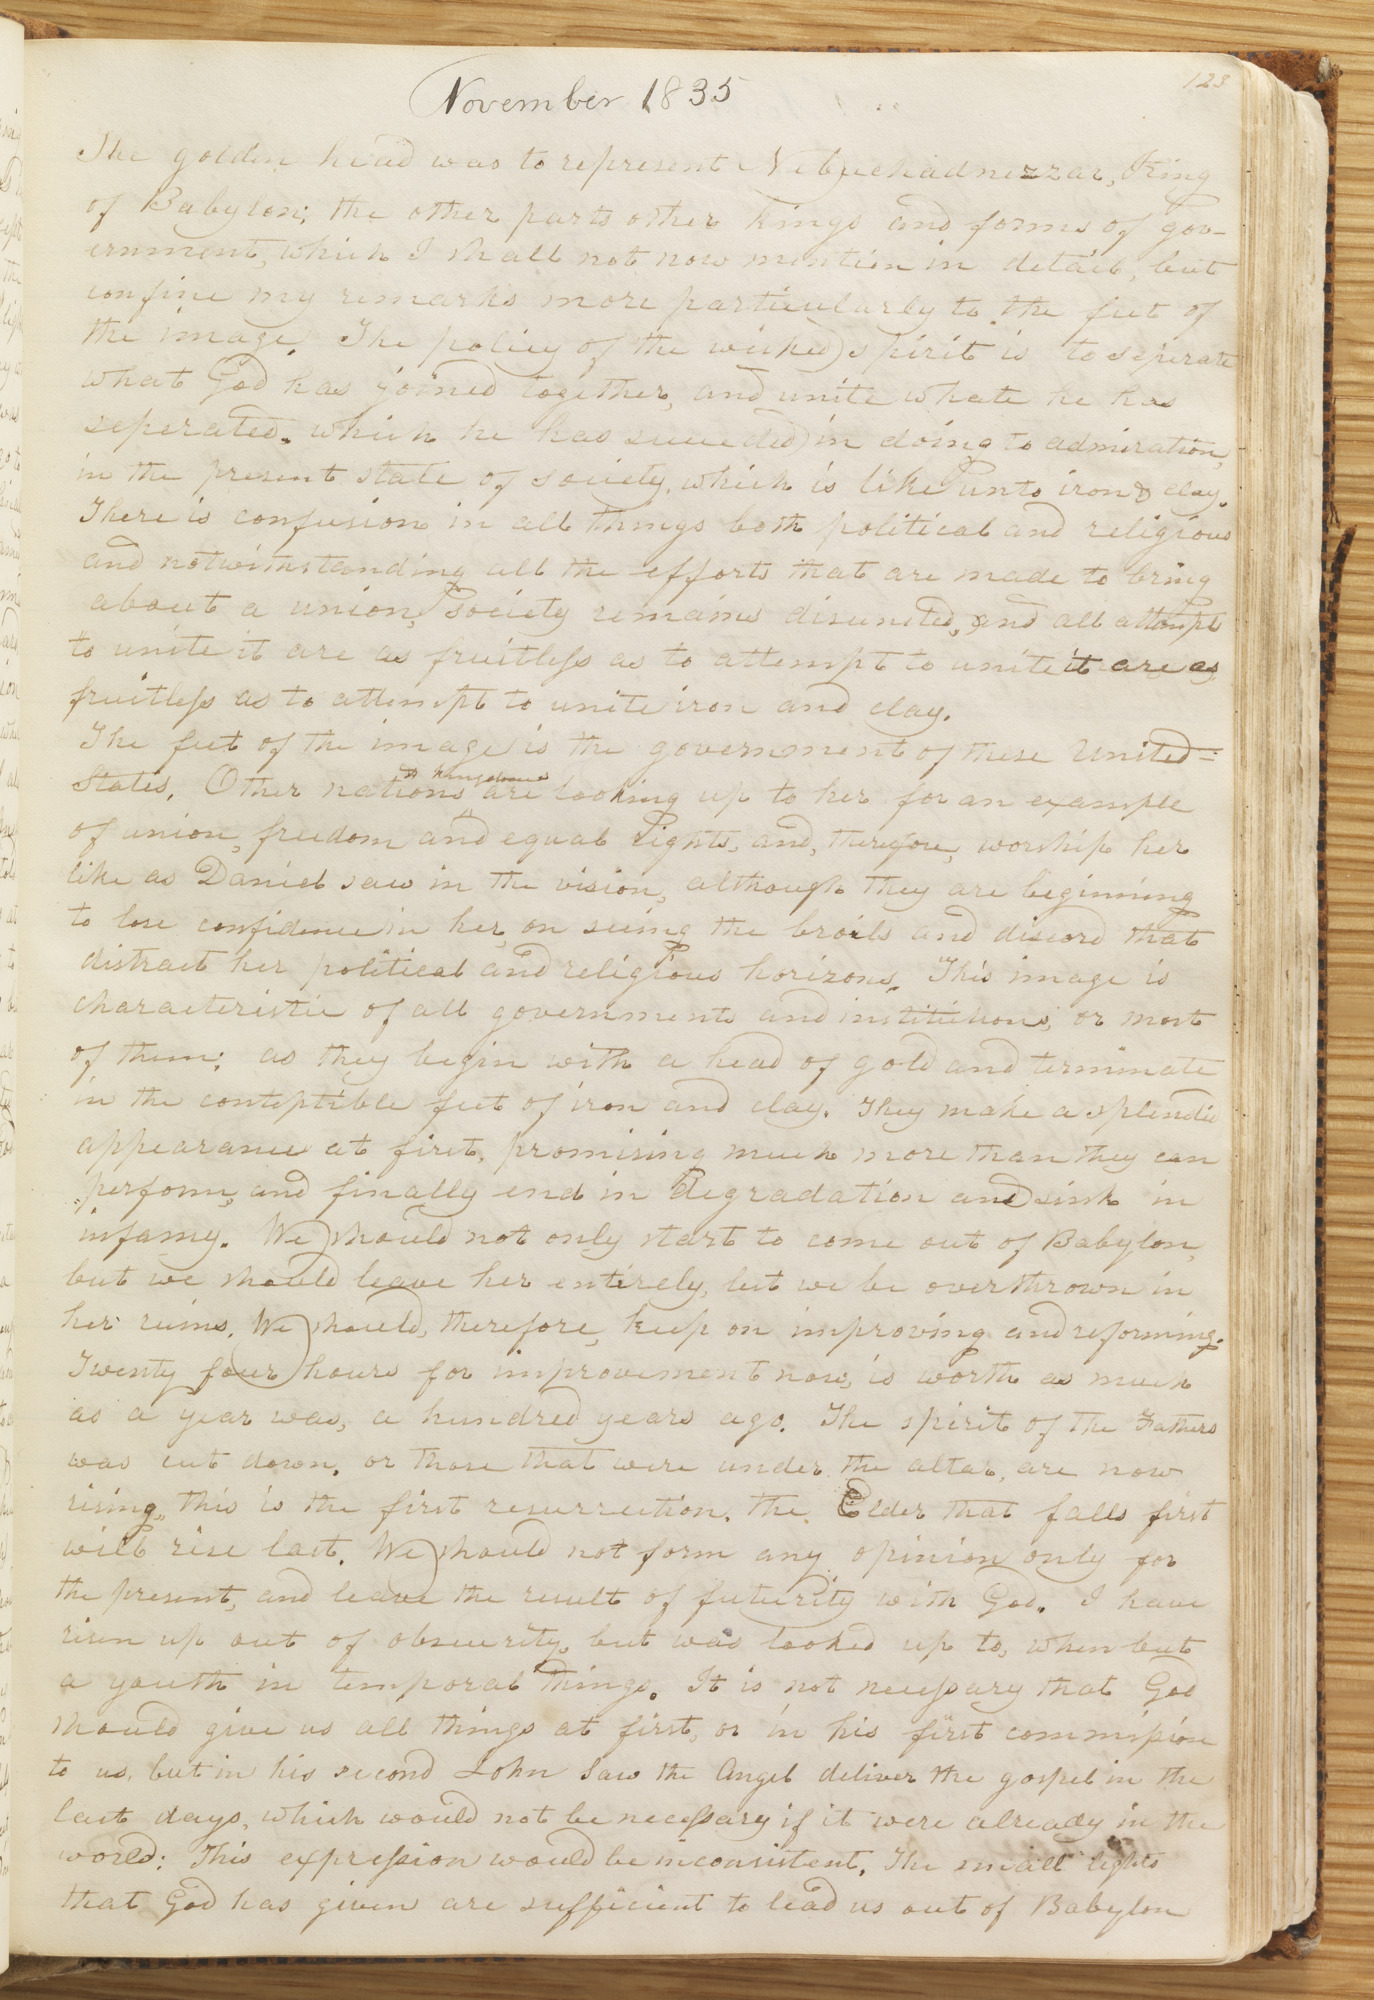 November 1835
123
The golden head was to represent Nebuchadnezzar, King
of Babylon; the other parts other kings and forms of gov-
ernment, which I shall not now mention in detail, but
confine my remarks more particularly to the feet of
the image. The policy of the wicked spirit is to seperate
what God has joined together, and unite whate he has
seperated. which he has succeded in doing to admiration,
in the present state of society, which is like unto iron & clay.
There is confusion in all things both political and religious
and notwithstanding all the efforts that are made to bring
about a union, society remains disunited, and all attempt
to unite it are as fruitless as to attempt to unite it are as
fruitless as to attempt to unite iron and clay.
The feet of the image is the government of these United=
States. Other nations & kingdoms are looking up to her for an example
of union, freedom and equal rights, and, therefore, worship her
like as Daniel saw in the vision, although they are beginning
to lose confidence in her, on seeing the broils and discord that
distract her political and religious horizons. This image is
characteristic of all governments and institutions, or most
of them; as they begin with a head of gold and terminate
in the conteptible feet of iron and clay. They make a splendid
appearance at first, promising much more than they can
perform, and finally end in degradation and sink in
infamy. We should not only start to come out of Babylon,
but we should leave her entirely, lest we be overthrown in
her ruins. We should, therefore, keep on improving and reforming.
Twenty four hours for improvement now, is worth as much
as a year was, a hundred years ago. The spirit of the Fathers
was cut down, or those that were under the altar, are now
rising, this is the first resurrection. the Elder that falls first
will rise last. We should not form any opinion only for
the present, and leave the result of futurity with God. I have
risen up out of obscurity, but was looked up to, when but
a youth in temporal things. It is not necessary that God
should give us all things at first, or in his first commission
to us, but in his second John saw the Angel deliver the gospel in the
last days, which would not be necessary if it were already in the
world: This expression would be inconsistent. The small lights
that God has given are sufficient to lead us out of Babylon